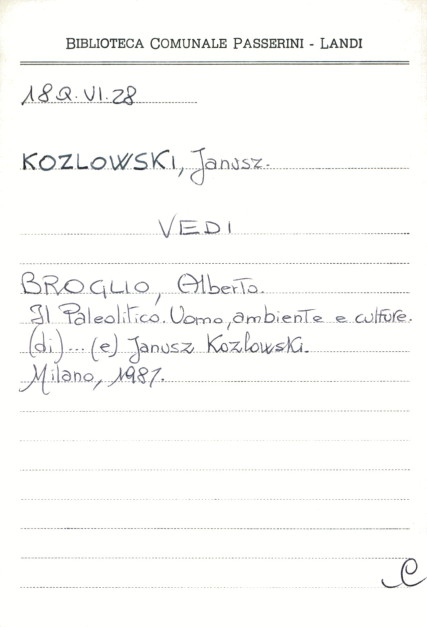 BIBLIOTECA COMUNALE PASSERINI - LANDI
18Q.VI.28
KOZLOWSKI, Janusz.
VEDI
BROGLIO, Alberto.
Il Paleolitico. Uomo, ambiente e culture.
(di)... (e) Janusz Kozlowski.
Milano, 1987.
C